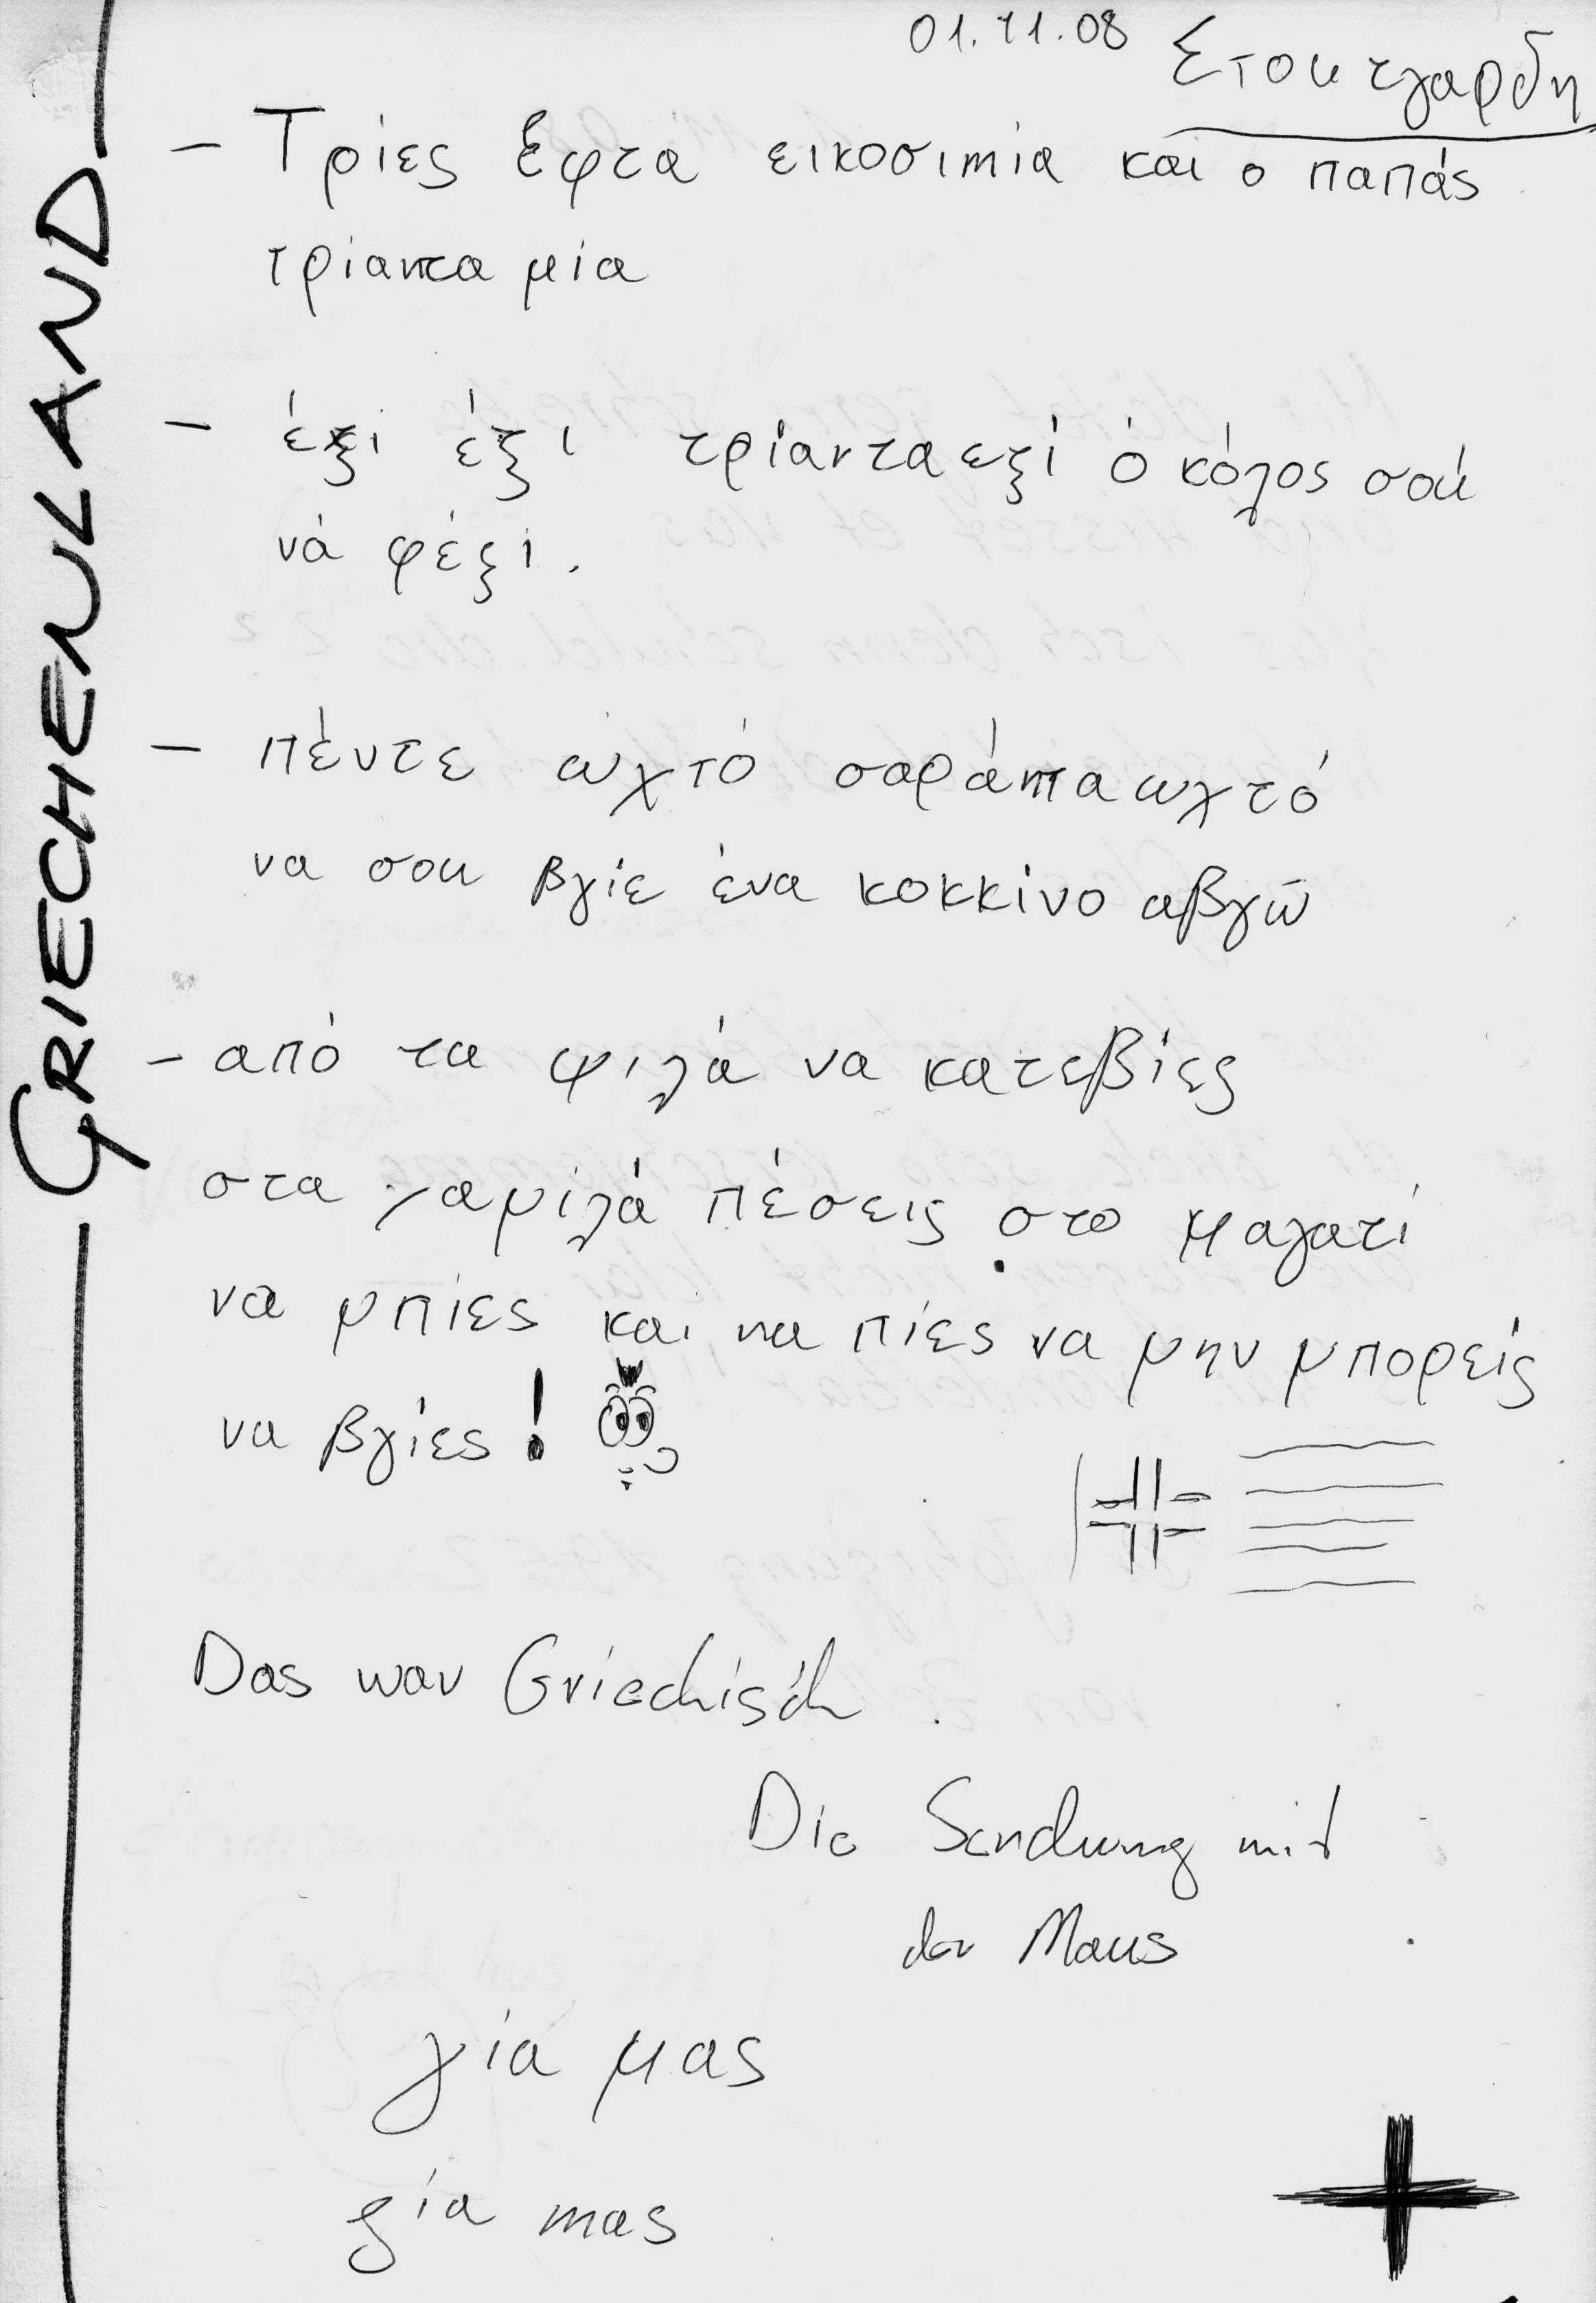 01.11.08 Στουτγαρδη
GRIECHENLAND
- Τρίες Εφτα εικοσιμία και ο παπάς
τρίαντα μία
- έξι έξι τρίανταεξί ὁ κόλος σου
νά φέξι.
- πέντε ωχτό σαράντα ωχτό
να σου βγίε ένα κοκκίνο αβγώ
- από τα ψιλά να κατεβίες
στα χαμιλά πέσεις στο μαγατί
να μπίες και να πίες να μην μπορείς
να βγίες!
Das war Griechisch
Die Sendung mit
der Maus
γία μας
gía mas